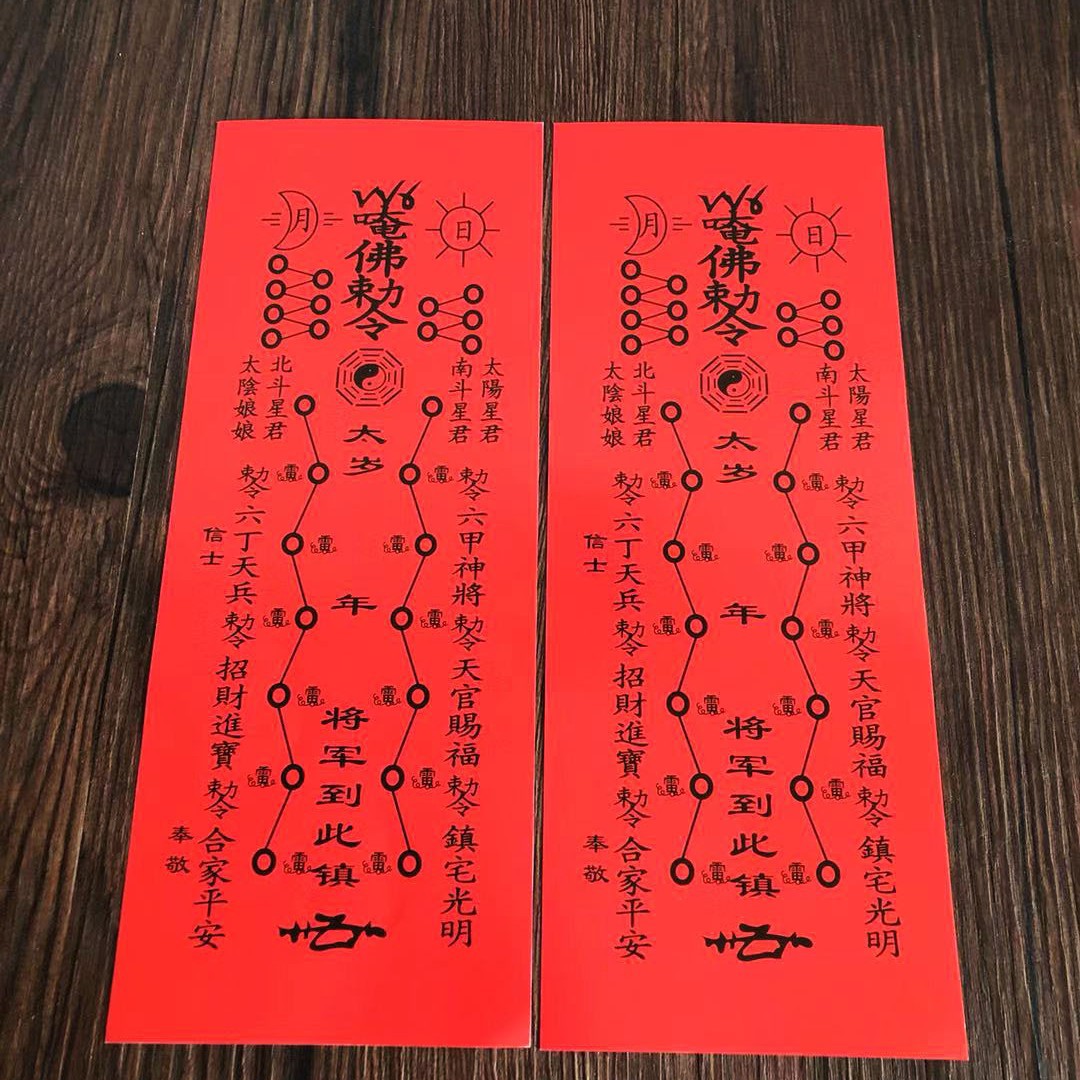 月
日
唵佛勅令
太陽星君
南斗星君
北斗星君
太陰娘娘
勅令六甲神將勅令天官賜福勅令鎮宅光明
太岁
年
将军到此镇
勅令六丁天兵勅令招財進寶勅令合家平安
信士
奉敬
月
日
唵佛勅令
太陽星君
南斗星君
北斗星君
太陰娘娘
勅令六甲神將勅令天官賜福勅令鎮宅光明
太岁
年
将军到此镇
勅令六丁天兵勅令招財進寶勅令合家平安
信士
奉敬